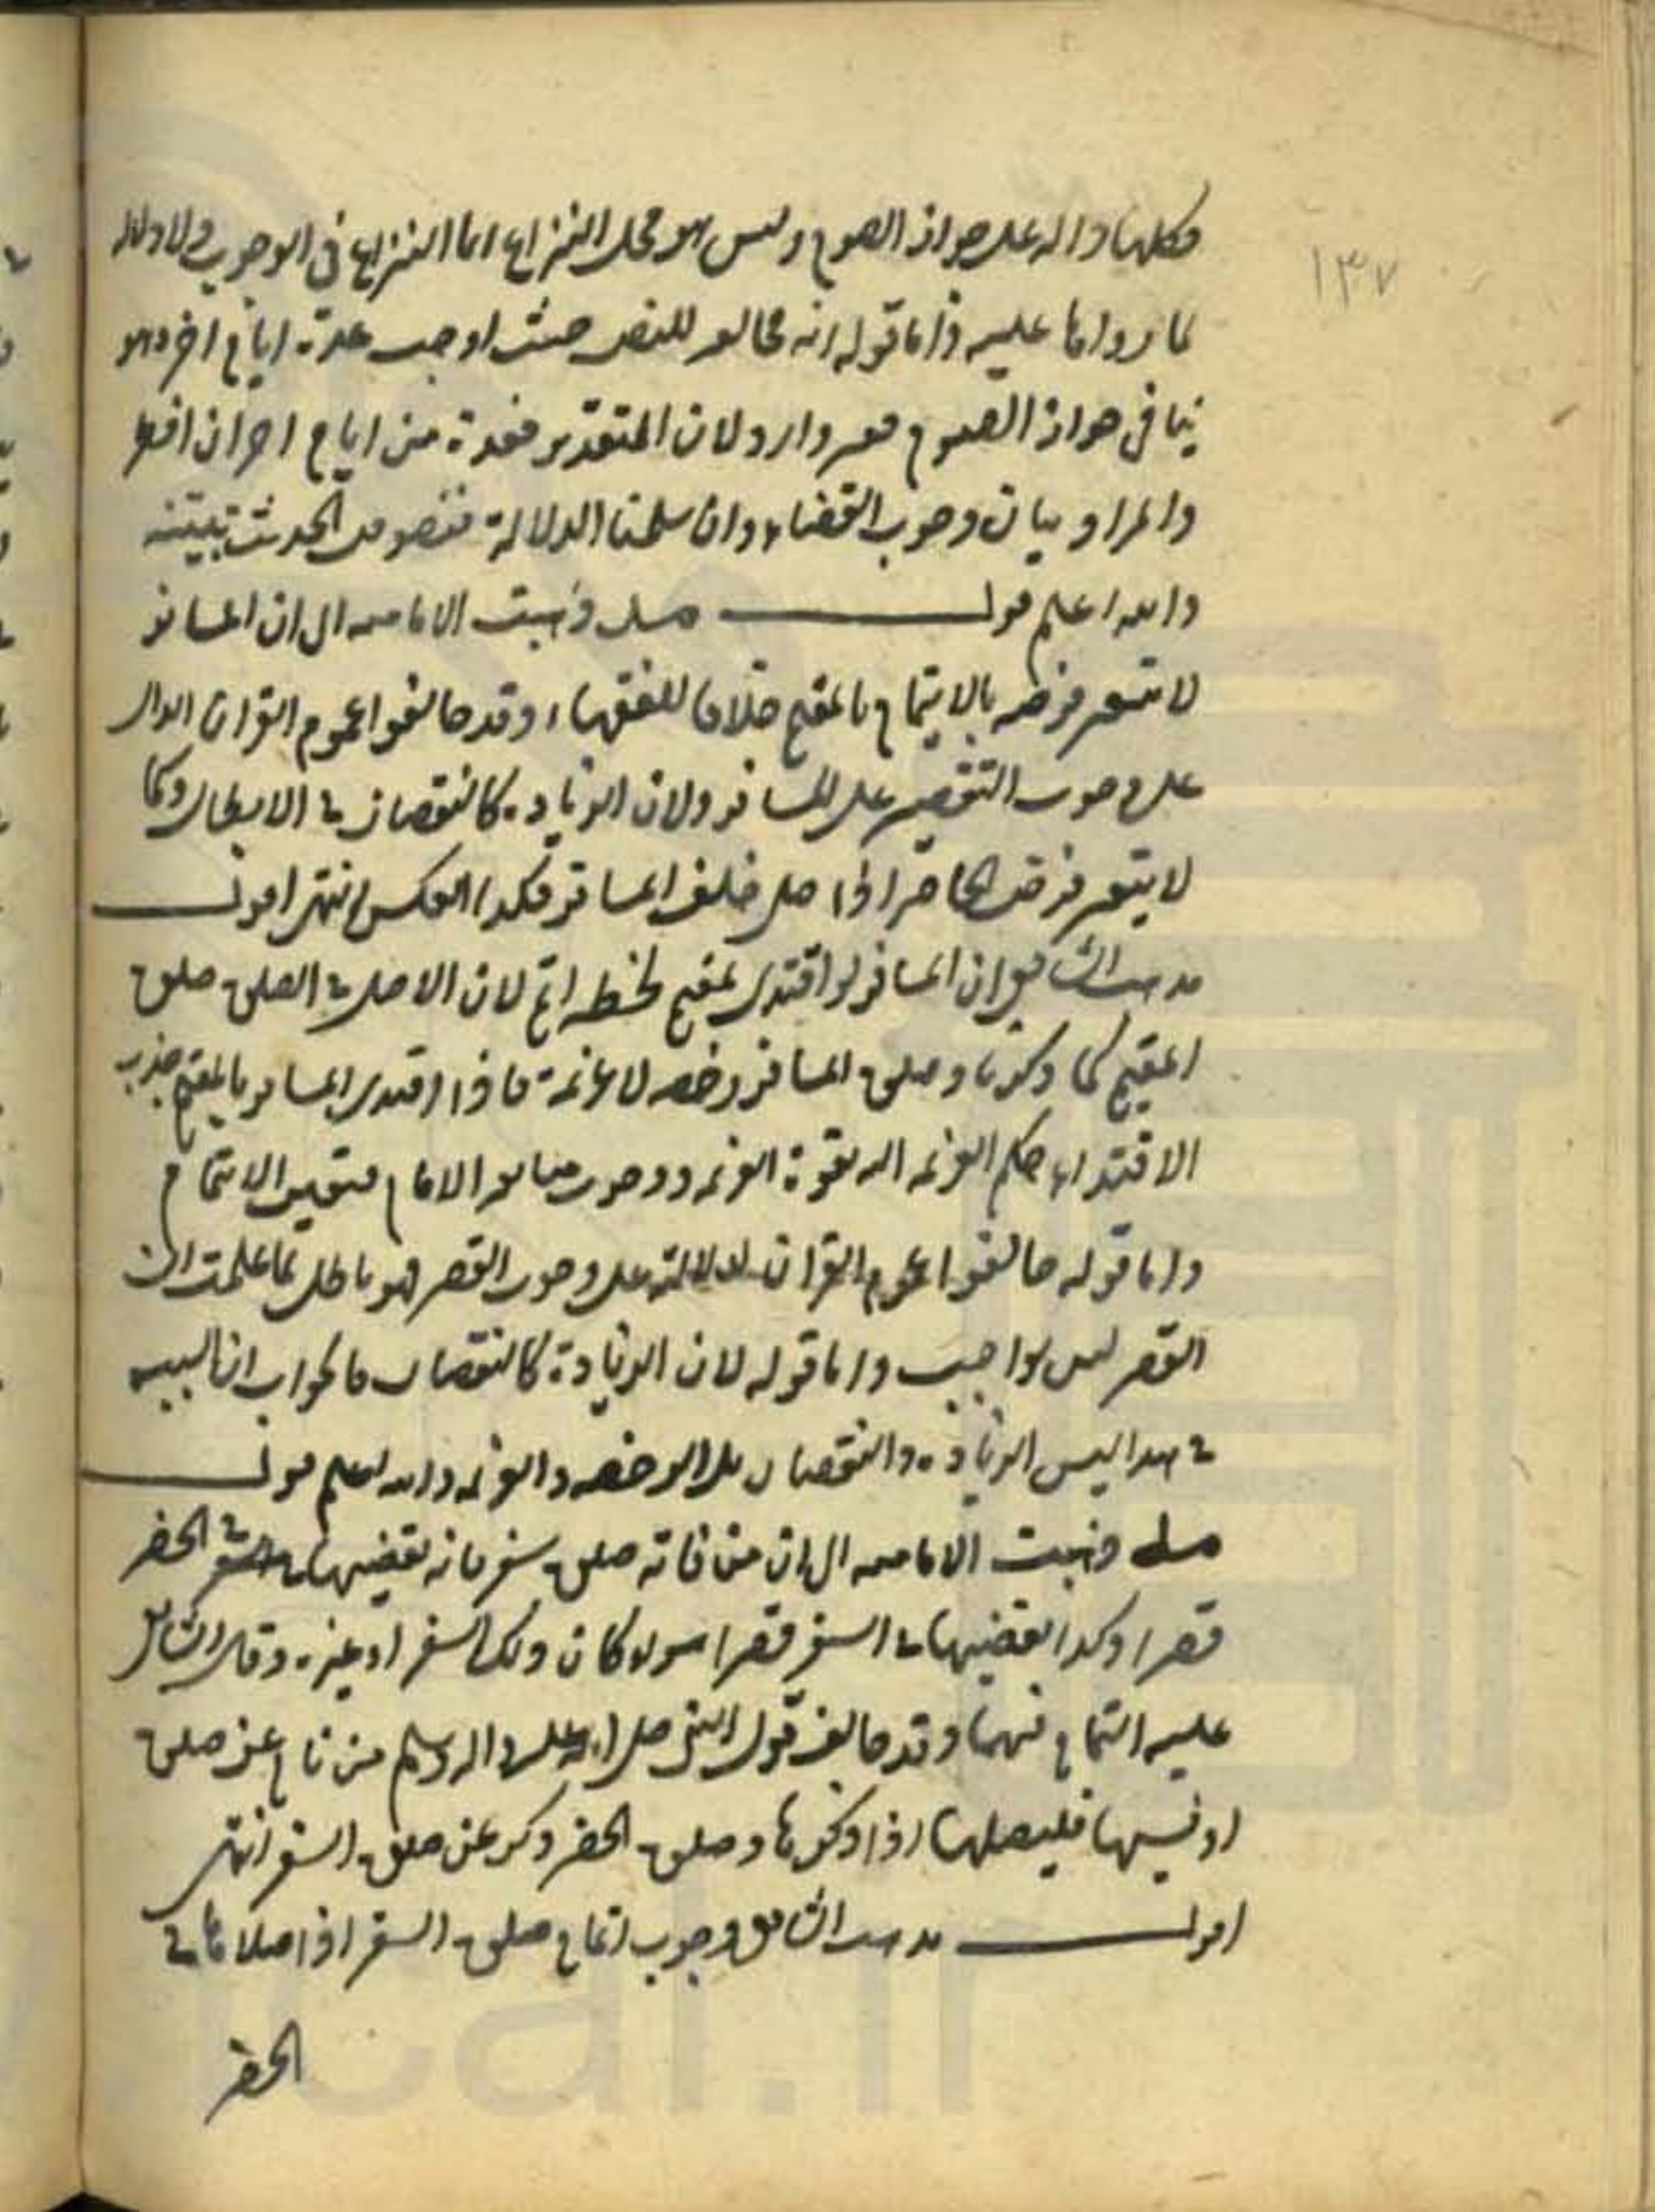 ١٣٧
فكلها دالة على جواز الصوم وليس هو محل النزاع انما النزاع في الوجوب ولا دلالة
لما رواها عليه واما قوله انه مخالف للنص حيث اوجب عدة ايام اخر وهو
ينافي جواز الصوم فغير وارد لان التقدير فعدة من ايام اخر ان افطر
والمراد بيان وجوب القضاء وان سلمنا الدلالة فنصوص الحديث تبينته
والله اعلم قوله مسلة ذهبت الامامية الى ان المسافر
لا يتغير فرضه بالايتمام بالمقيم خلافا للفقهاء وقد خالفوا عموم القران الدال
على وجوب التقصير على المسافر ولان الزيادة كالنقصان في الابطال وكما
لا يتغير فرض الحاضر اذا صلى خلف المسافر فكذا العكس انتهى اقول
مذهب الشافعي ان المسافر لو اقتدى بمقيم لحظة اتم لان الاصل في الصلوة صلوة
المقيم كما ذكرنا وصلوة المسافر رخصة لا عزيمة فاذا اقتدى المسافر بالمقيم جذب
الاقتداء حكم العزيمة اليه لقوة العزيمة ووجوب متابعة الامام فتعين الاتمام
واما قوله خالفوا عموم القران لدلالته على وجوب القصر فهو باطل لما علمت ان
القصر ليس بواجب واما قوله لان الزيادة كالنقصان فالجواب ان السبب
في هذا ليس الزيادة والنقصان بل الرخصة والعزيمة والله اعلم قوله
مسلة ذهبت الامامية الى ان من فاته صلوة سفر فانه يقضيها في الحضر
قصرا وكذا يقضيها في السفر قصرا سواء كان ذلك السفر او غيره وقال الشافعي
عليه التمام فيهما وقد خالف قول النبي صلى الله عليه واله وسلم من نام عن صلوة
او نسيها فليصلها اذا ذكرها وصلوة الحضر ذكر عن صلوة السفر انتهى
اقول مذهب الشافعي وجوب اتمام صلوة السفر اذا صلاها في
الحضر